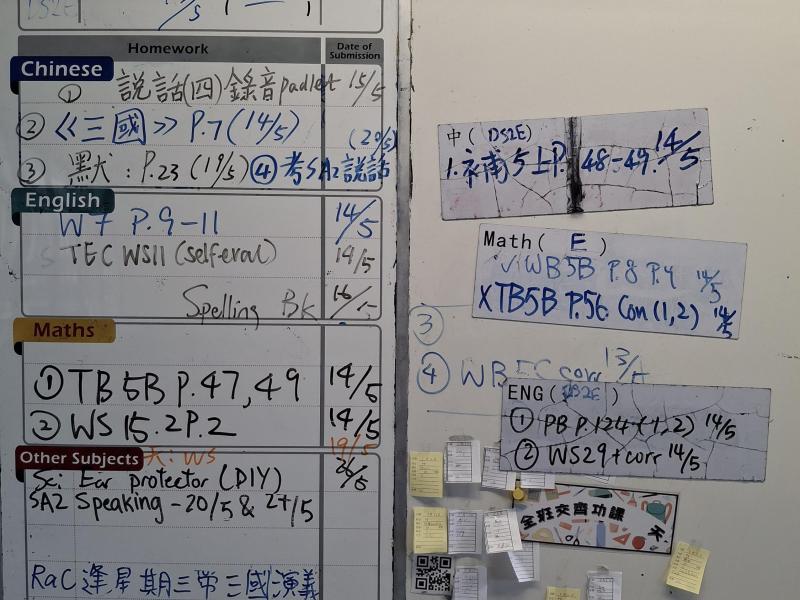 DS2E
Homework
Date of Submission
Chinese
① 説話(四)錄音padlet 15/5
② 《三國》 P.7 (14/5)
(20/5)
③ 黑犬: P.23 (19/5) ④ 考SA2説話
English
W7 P.9-11 14/5
TEC WS11 (self-eval) 14/5
Spelling Bk 16/5
Maths
① TB 5B P.47, 49 14/5
② WS 15.2 P.2 14/5
Other Subjects
: WS 19/5
Sc: Ear protector (DIY) 26/5
SA2 Speaking - 20/5 & 27/5
RaC 逢星期三帶三國演義
中( DS2E )
1. 5上P. 48-49. 14/5
Math( E )
√ WB5B P.8 P.9 14/5
X TB5B P.56 Con (1,2) 14/5
③
④ WB 5C corr 13/5
ENG( DS2E )
① PB P.124 (1,2) 14/5
② WS29 + corr 14/5
全班交齊功課 天